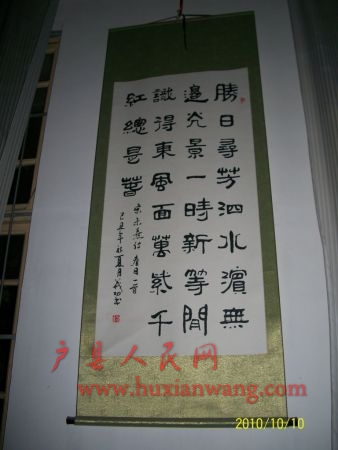 勝日尋芳泗水濱無
邊光景一時新等閒
識得東風面萬紫千
紅總是春
宋朱熹 春日一首
己丑年 夏月 書
户县人民网
www.huxianwang.com
2010/10/10